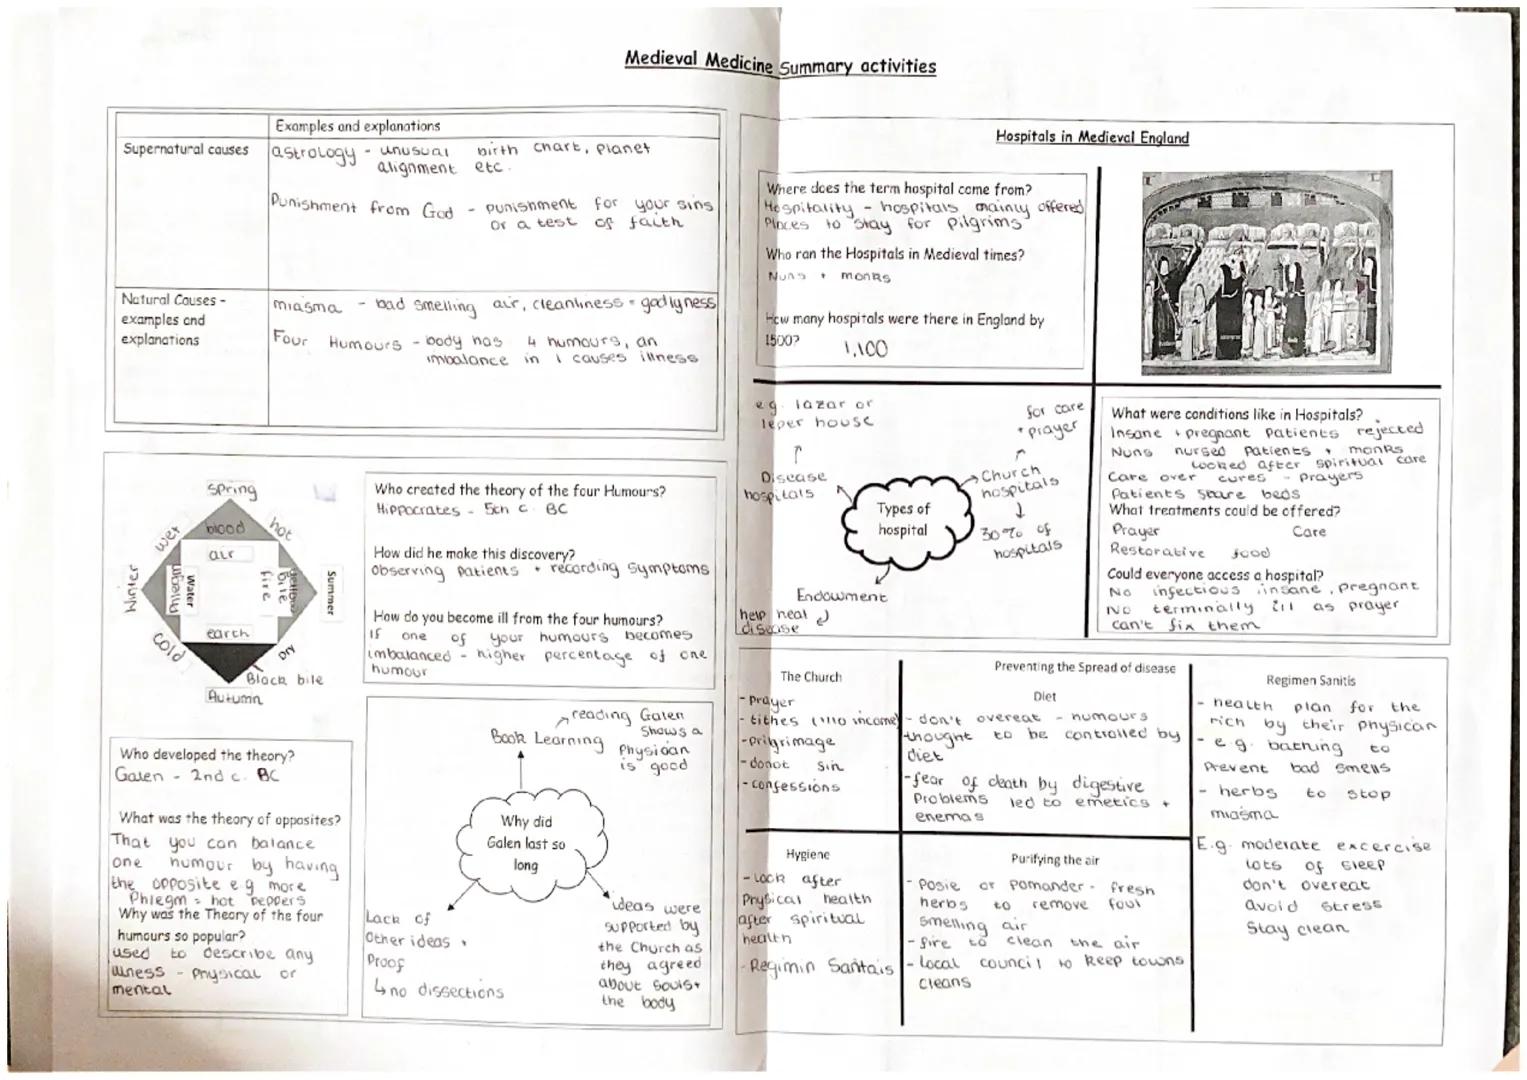 Medieval Medicine Summary activities
Examples and explanations
Supernatural causes
astrology - unusual birth chart, planet
alignment etc.
Punishment from God - punishment for your sins
or a test of faith
Natural Causes -
examples and
explanations
miasma - bad smelling air, cleanliness = godlyness
Four Humours - body has 4 humours, an
imbalance in 1 causes illness
spring
wet
hot
blood
air
Winter
phlegm
Water
fire
yellow
bile
Summer
earth
cold
Dry
Black bile
Autumn
Who created the theory of the four Humours?
Hippocrates - 5th c. BC
How did he make this discovery?
Observing patients + recording symptoms
How do you become ill from the four humours?
If one of your humours becomes
imbalanced - higher percentage of one
humour
Who developed the theory?
Galen - 2nd c. BC
What was the theory of opposites?
That you can balance
one humour by having
the opposite e.g more
Phlegm = hot peppers
Why was the Theory of the four
humours so popular?
used to describe any
illness - physical or
mental
Why did
Galen last so
long
Book Learning
reading Galen
shows a
Physician
is good
Lack of
Other ideas +
Proof
↳ no dissections
ideas were
supported by
the Church as
they agreed
about souls +
the body
Hospitals in Medieval England
Where does the term hospital come from?
Hospitality - hospitals mainly offered
Places to stay for pilgrims
Who ran the Hospitals in Medieval times?
Nuns + monks
How many hospitals were there in England by
1500?
1,100
Types of
hospital
e.g. lazar or
leper house
Disease
hospitals
for care
+ prayer
Church
hospitals
30% of
hospitals
Endowment
help heal
disease
What were conditions like in Hospitals?
Insane + pregnant patients rejected
Nuns nursed patients + monks
looked after spiritual care
Care over cures - prayers
Patients share beds
What treatments could be offered?
Prayer Care
Restorative food
Could everyone access a hospital?
No infectious, insane, pregnant
No terminally ill as prayer
can't fix them
Preventing the Spread of disease
The Church
- prayer
- tithes (1/10 income)
- prigrimage
- donot sin
- confessions
Diet
- don't overeat - humours
thought to be controlled by
diet
- fear of death by digestive
Problems led to emetics +
enemas
Regimen Sanitis
- health plan for the
rich by their physican
- e.g. bathing to
Prevent bad smells
- herbs to stop
miasma
E.g. moderate excercise
lots of sleep
don't overeat
avoid stress
Stay clean
Hygiene
- look after
Physical health
after spiritual
health
- Regimin Santais
Purifying the air
- Posie or Pomander - fresh
herbs to remove foul
smelling air
- fire to clean the air
- local council to keep towns
cleans